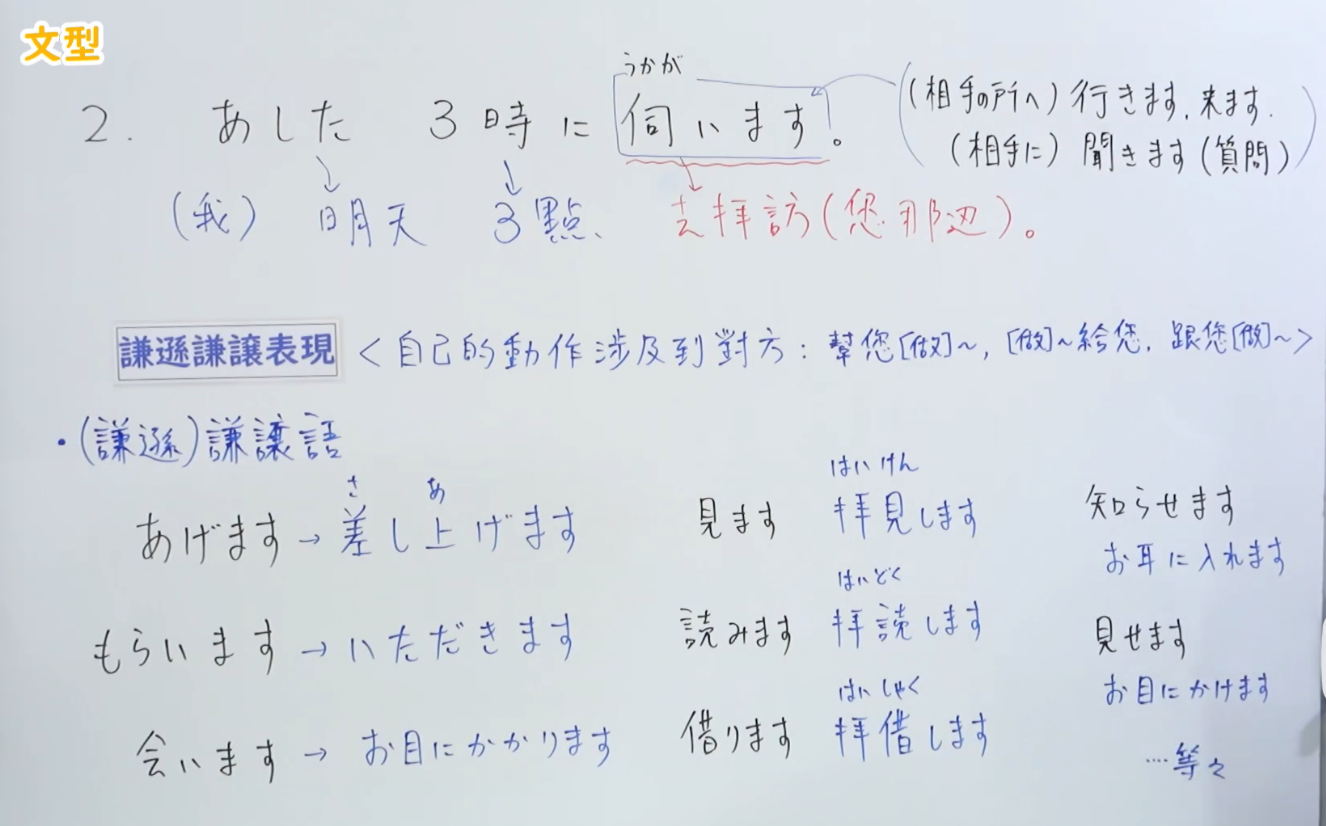 文型
うかが
2. あした 3時に 伺います。
(相手の所へ) 行きます、来ます.
(相手に) 聞きます (質問)
(我) 明天 3點、 去拜訪(您那辺)。
謙遜謙譲表現 <自己的動作涉及到對方: 幫您[做]~, [做]~給您, 跟您[做]~>
・(謙遜)謙譲語
さ あ
あげます→差し上げます
もらいます→いただきます
会います→お目にかかります
はいけん
見ます 拝見します
はいどく
読みます 拝読します
はいしゃく
借ります 拝借します
知らせます
お耳に入れます
見せます
お目にかけます
…等々